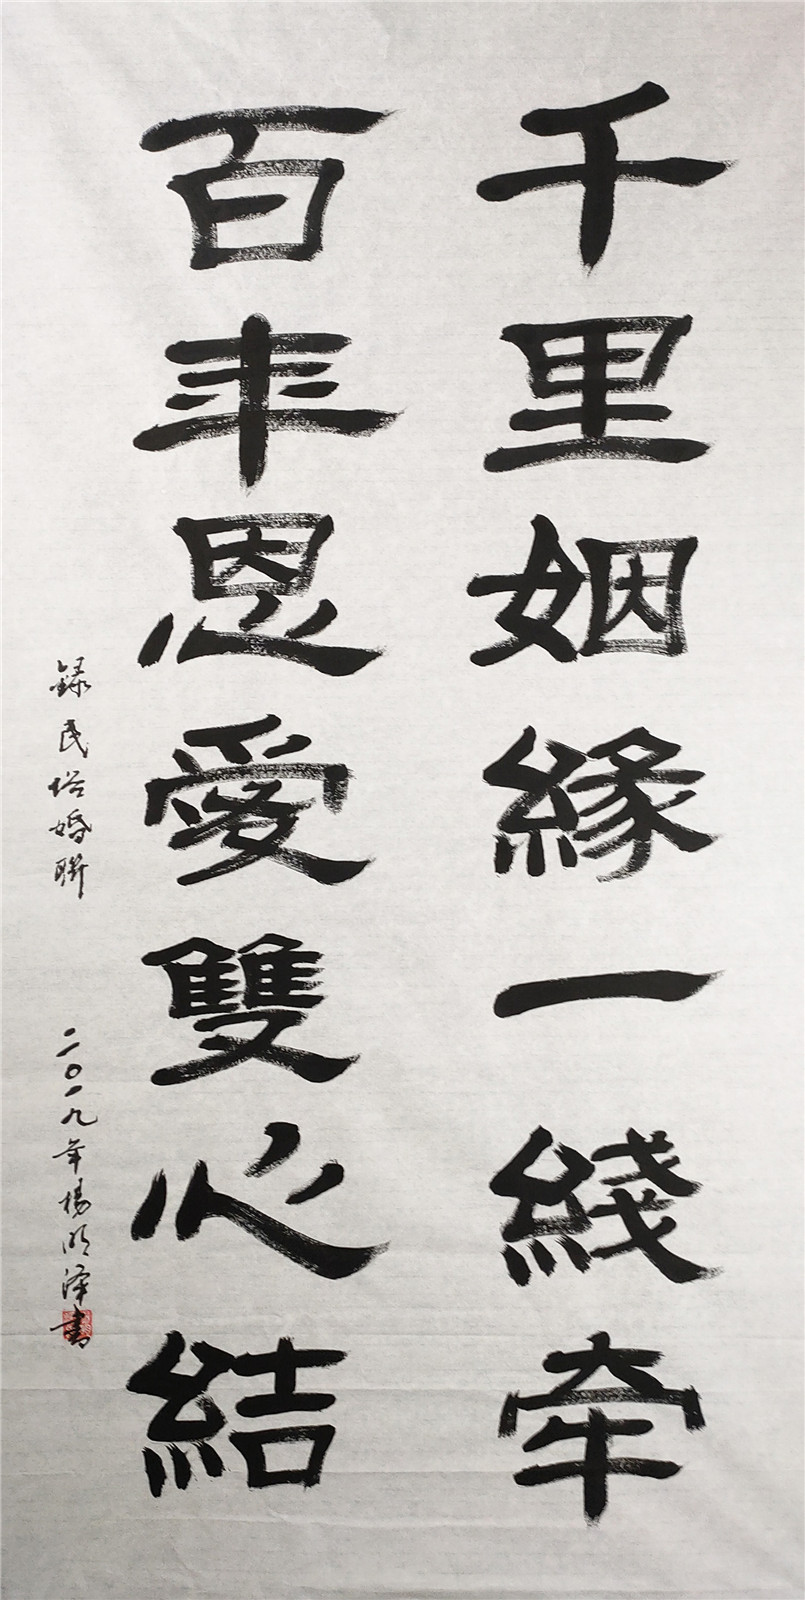 千里姻緣一綫牽
百年恩愛雙心結
録民俗婚聯
二〇一九年楊明澤書